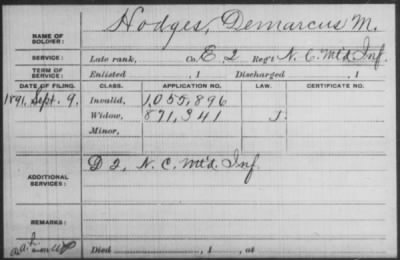 NAME OF SOLDIER: Hodges, Demarcus M.
SERVICE: Late rank, Co. E 2 Reg't N. C. Mt'd Inf.
TERM OF SERVICE: Enlisted , 1 Discharged , 1
DATE OF FILING. CLASS. APPLICATION NO. LAW. CERTIFICATE NO.
1891, Sept. 9. Invalid, 1,055,896
Widow, 871,341 J.
Minor,
ADDITIONAL SERVICES: D 2, N. C. Mt'd. Inf
REMARKS:
Died , 1 , at